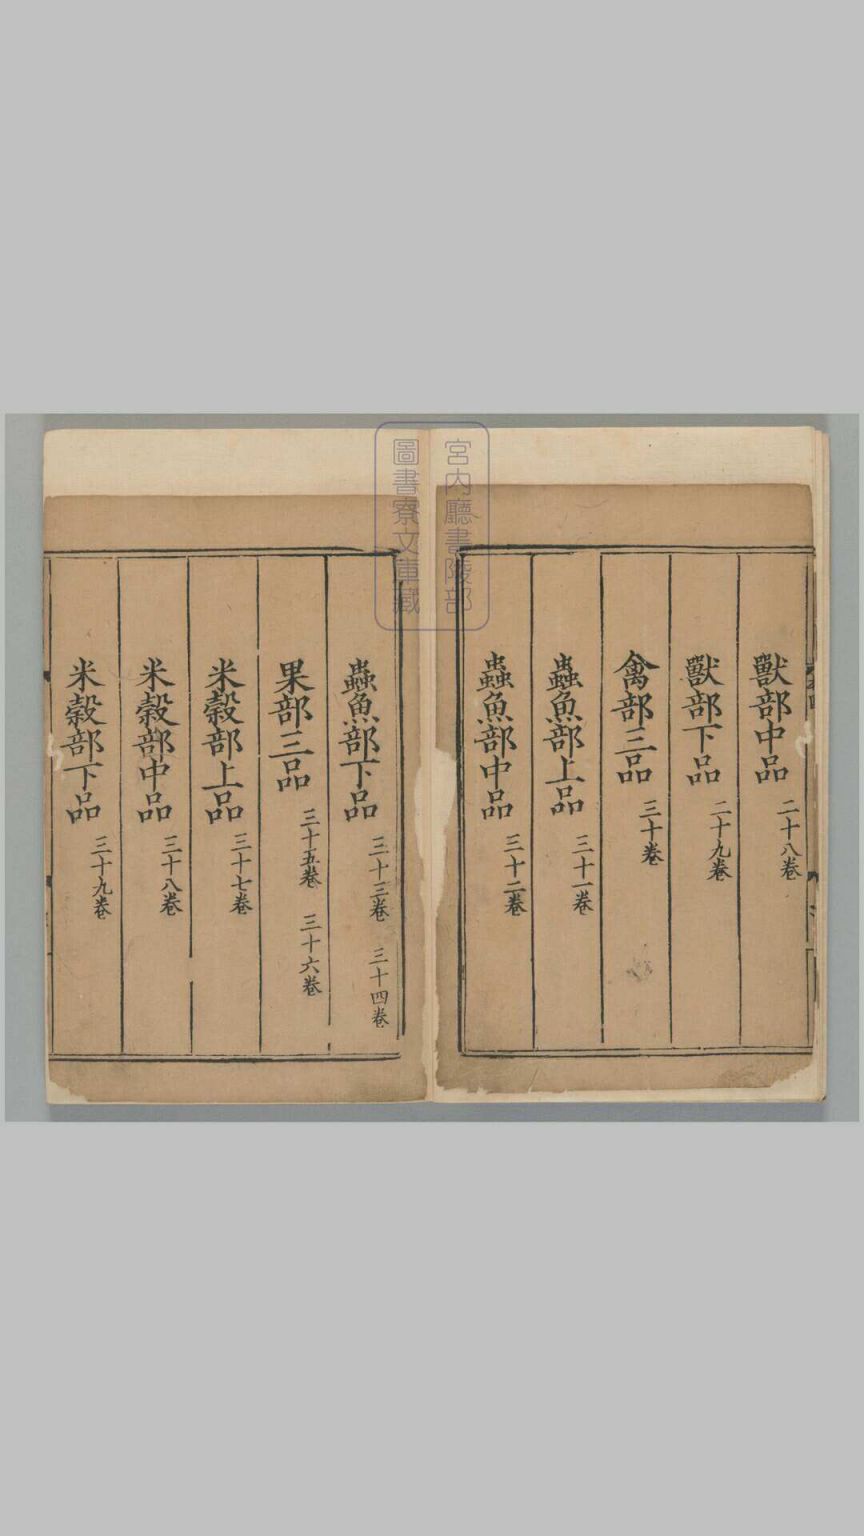 獸部中品 二十八卷
獸部下品 二十九卷
禽部三品 三十卷
蟲魚部上品 三十一卷
蟲魚部中品 三十二卷
蟲魚部下品 三十三卷 三十四卷
果部三品 三十五卷 三十六卷
米穀部上品 三十七卷
米穀部中品 三十八卷
米穀部下品 三十九卷
宮内廳書陵部
圖書寮文庫藏